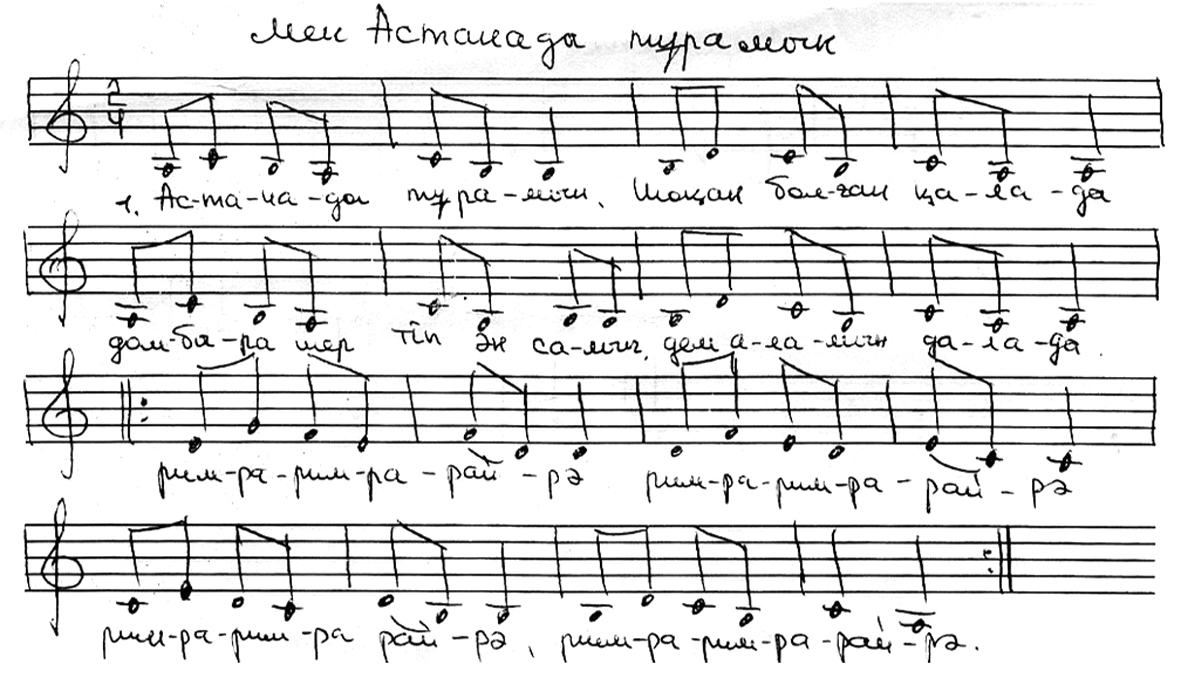 мен Астанада тұрамын
2
4
1. Ас-та-на-да тұ-ра-мын, Шоқан бол-ған қа-ла-да
дом-бы-ра шер тіп ән са-мын, дем а-ла-мын да-ла-да.
рим-ра-рим-ра-рай-рэ рим-ра-рим-ра-рай-рэ
рим-ра-рим-ра рай-рэ, рим-ра-рим-ра-рай-рэ.